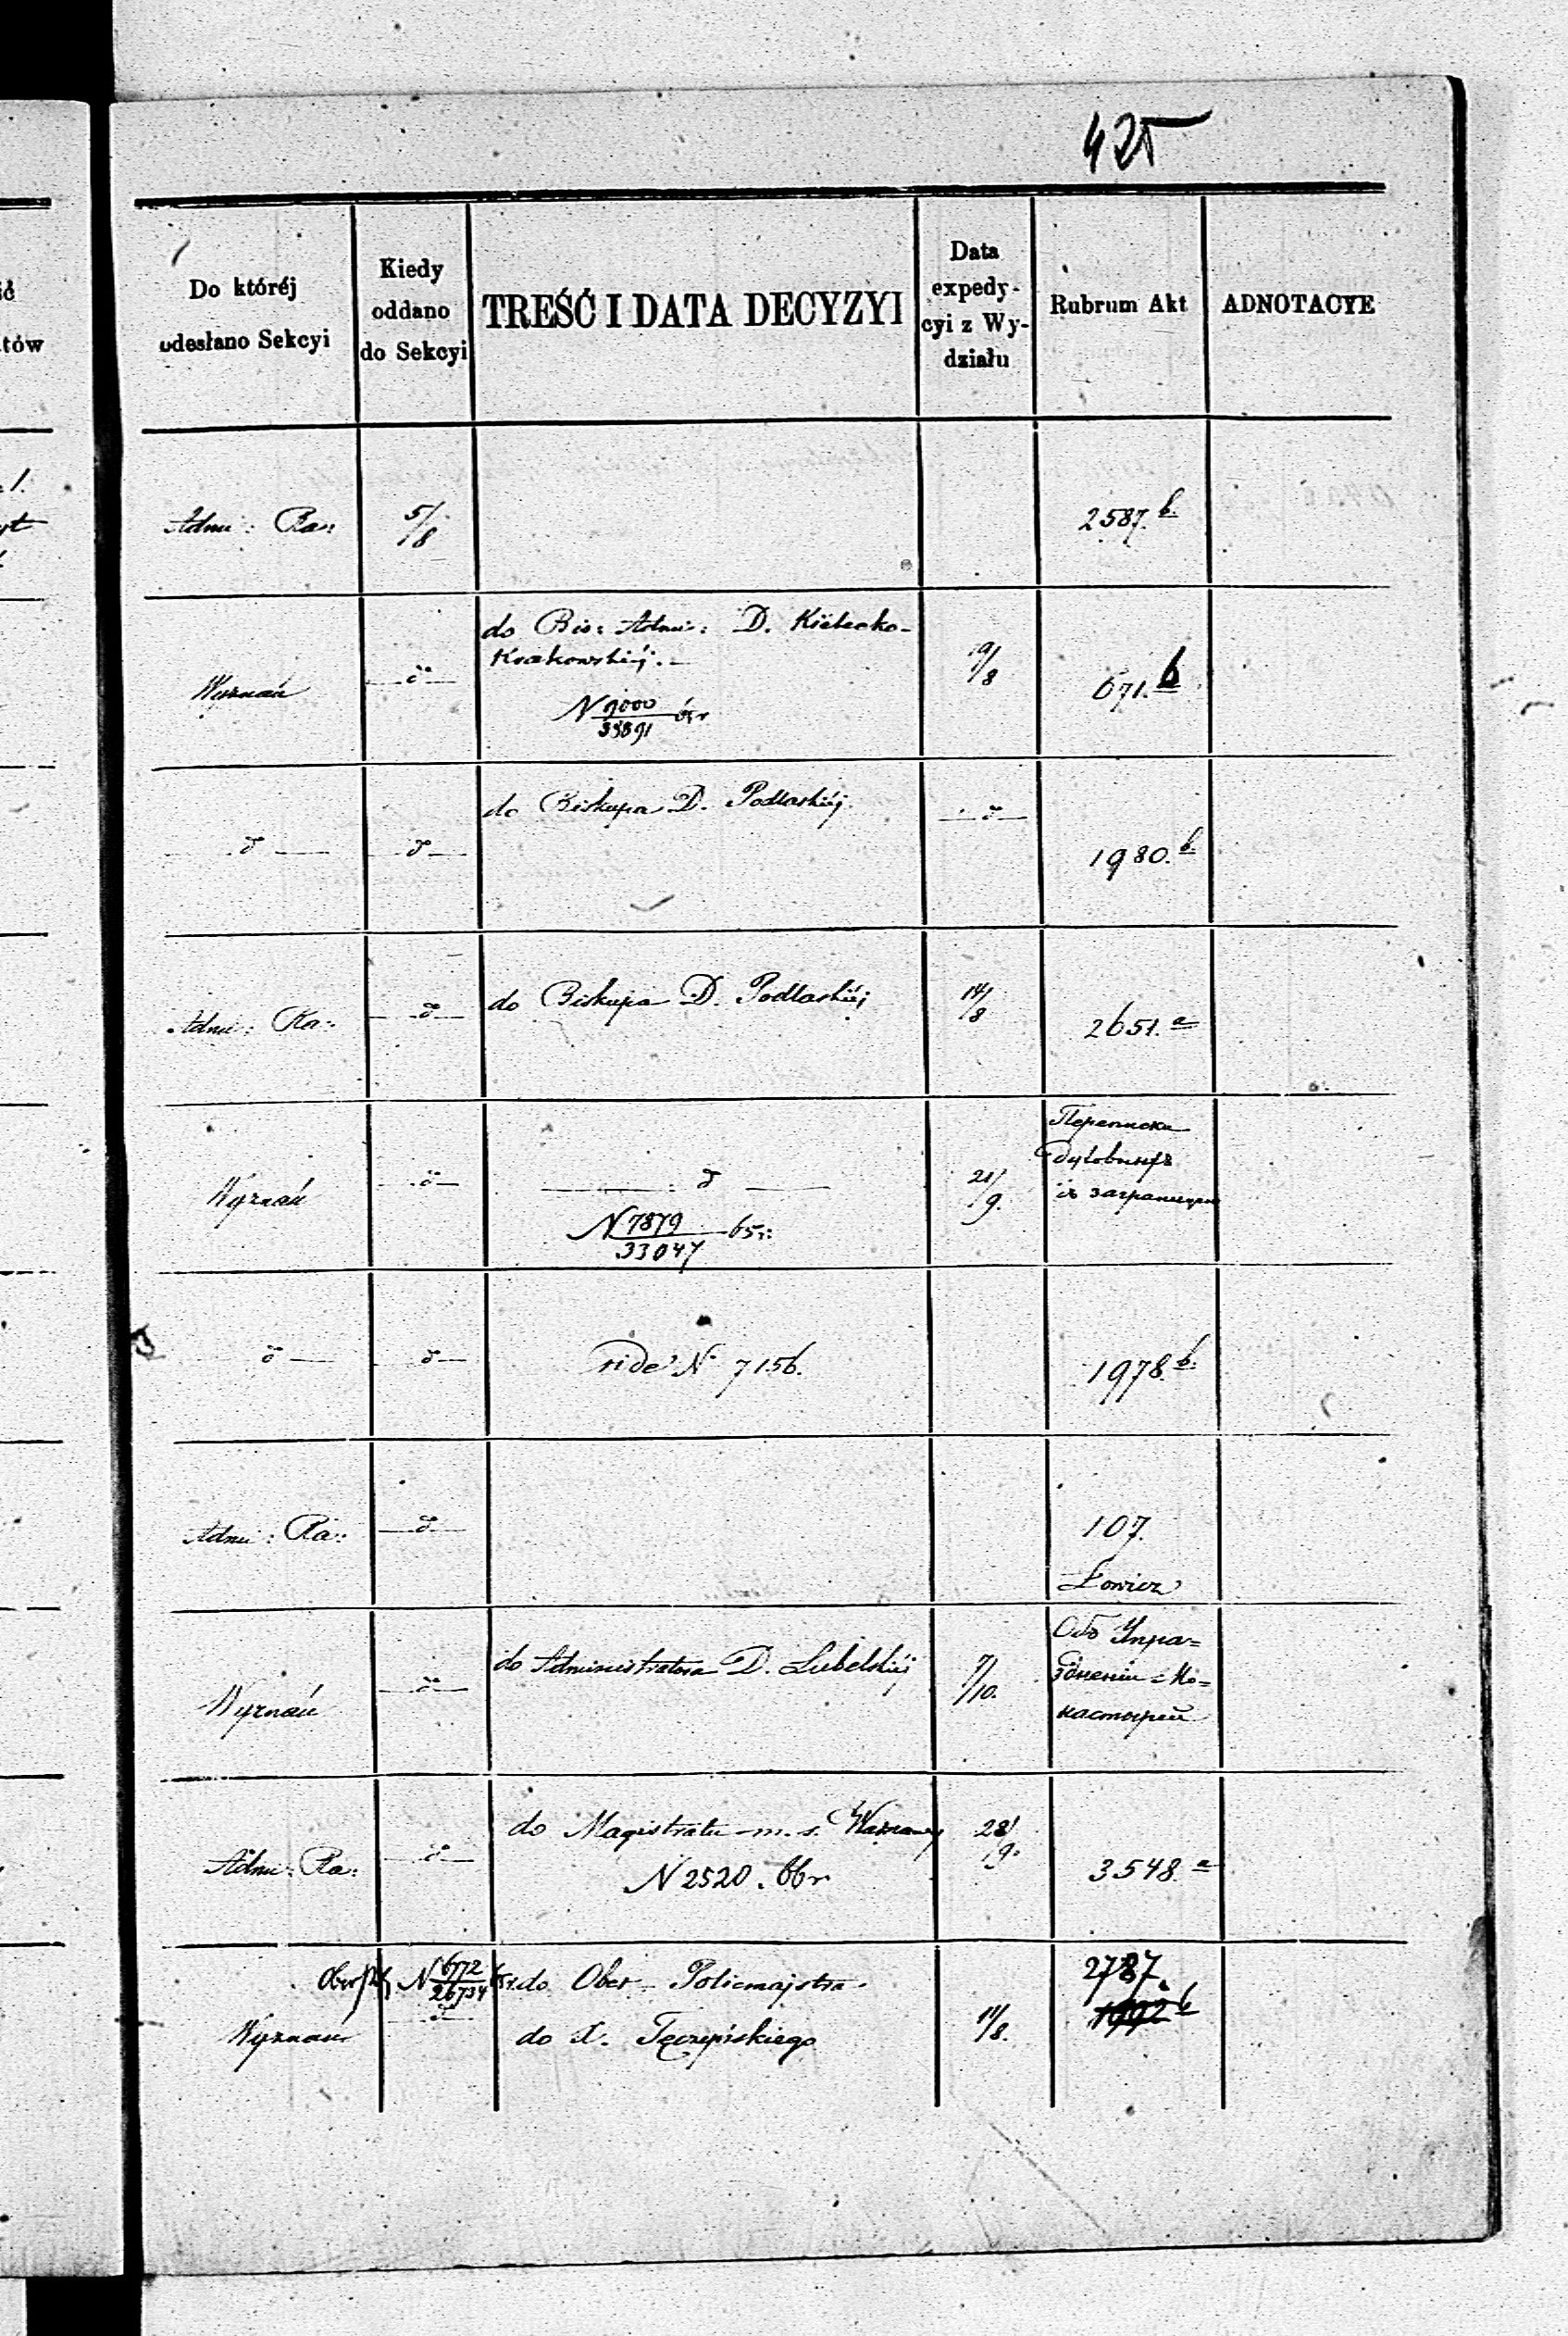 425
Do któréj
odesłano Sekcyi
Kiedy
oddano
do Sekcyi
TREŚĆ I DATA DECYZYI
Data
expedy-
cyi z Wy-
działu
Rubrum Akt
ADNOTACYE
Adm: Ra:
5/8
2587. b.
do Bis: Adm: D. Kielecko-
Krakowskiéj.
Wyznań
d
N 9000/33891 65 r
19/8
671. b
do Biskupa D. Podlaskiéj
d
d
d
1980. b.
Adm: Ra:
d
do Biskupa D. Podlaskiéj
14/8
2651. a
Wyznań
d
d
N 7879/33047 65 r:
21/9.
Переписка
Духовныхъ
съ заграницею
d
d
vide N 7156.
1978. b.
Adm: Ra:
d
107.
Łowicz
Wyznań
d
do Administratora D. Lubelskiéj
7/10.
Объ Упра=
здненіи Мо=
настырей
Adm: Ra:
d
do Magistratu m. s. Warszawy
N 2520. 66 r
28/9.
3548. a
N 6772/26734 65 r.
do Ober-Policmajstra.
2787.
Wyznań
d
do X. Tęczyńskiego
11/8.
1992 b